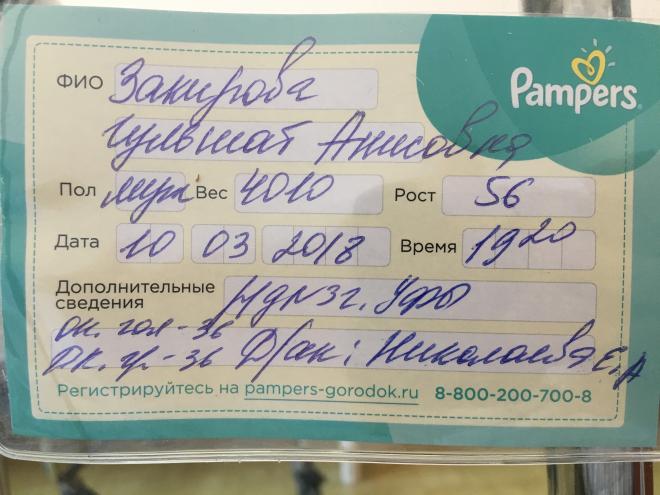 Pampers
ФИО Закирова
Гульшат Анисовна
Пол муж Вес 4010 Рост 56
Дата 10 03 2018 Время 19 20
Дополнительные сведения г. Уфы
ок. гол - 36
ок. гр. - 36 Д/ак: Николаева Е.А
Регистрируйтесь на pampers-gorodok.ru 8-800-200-700-8